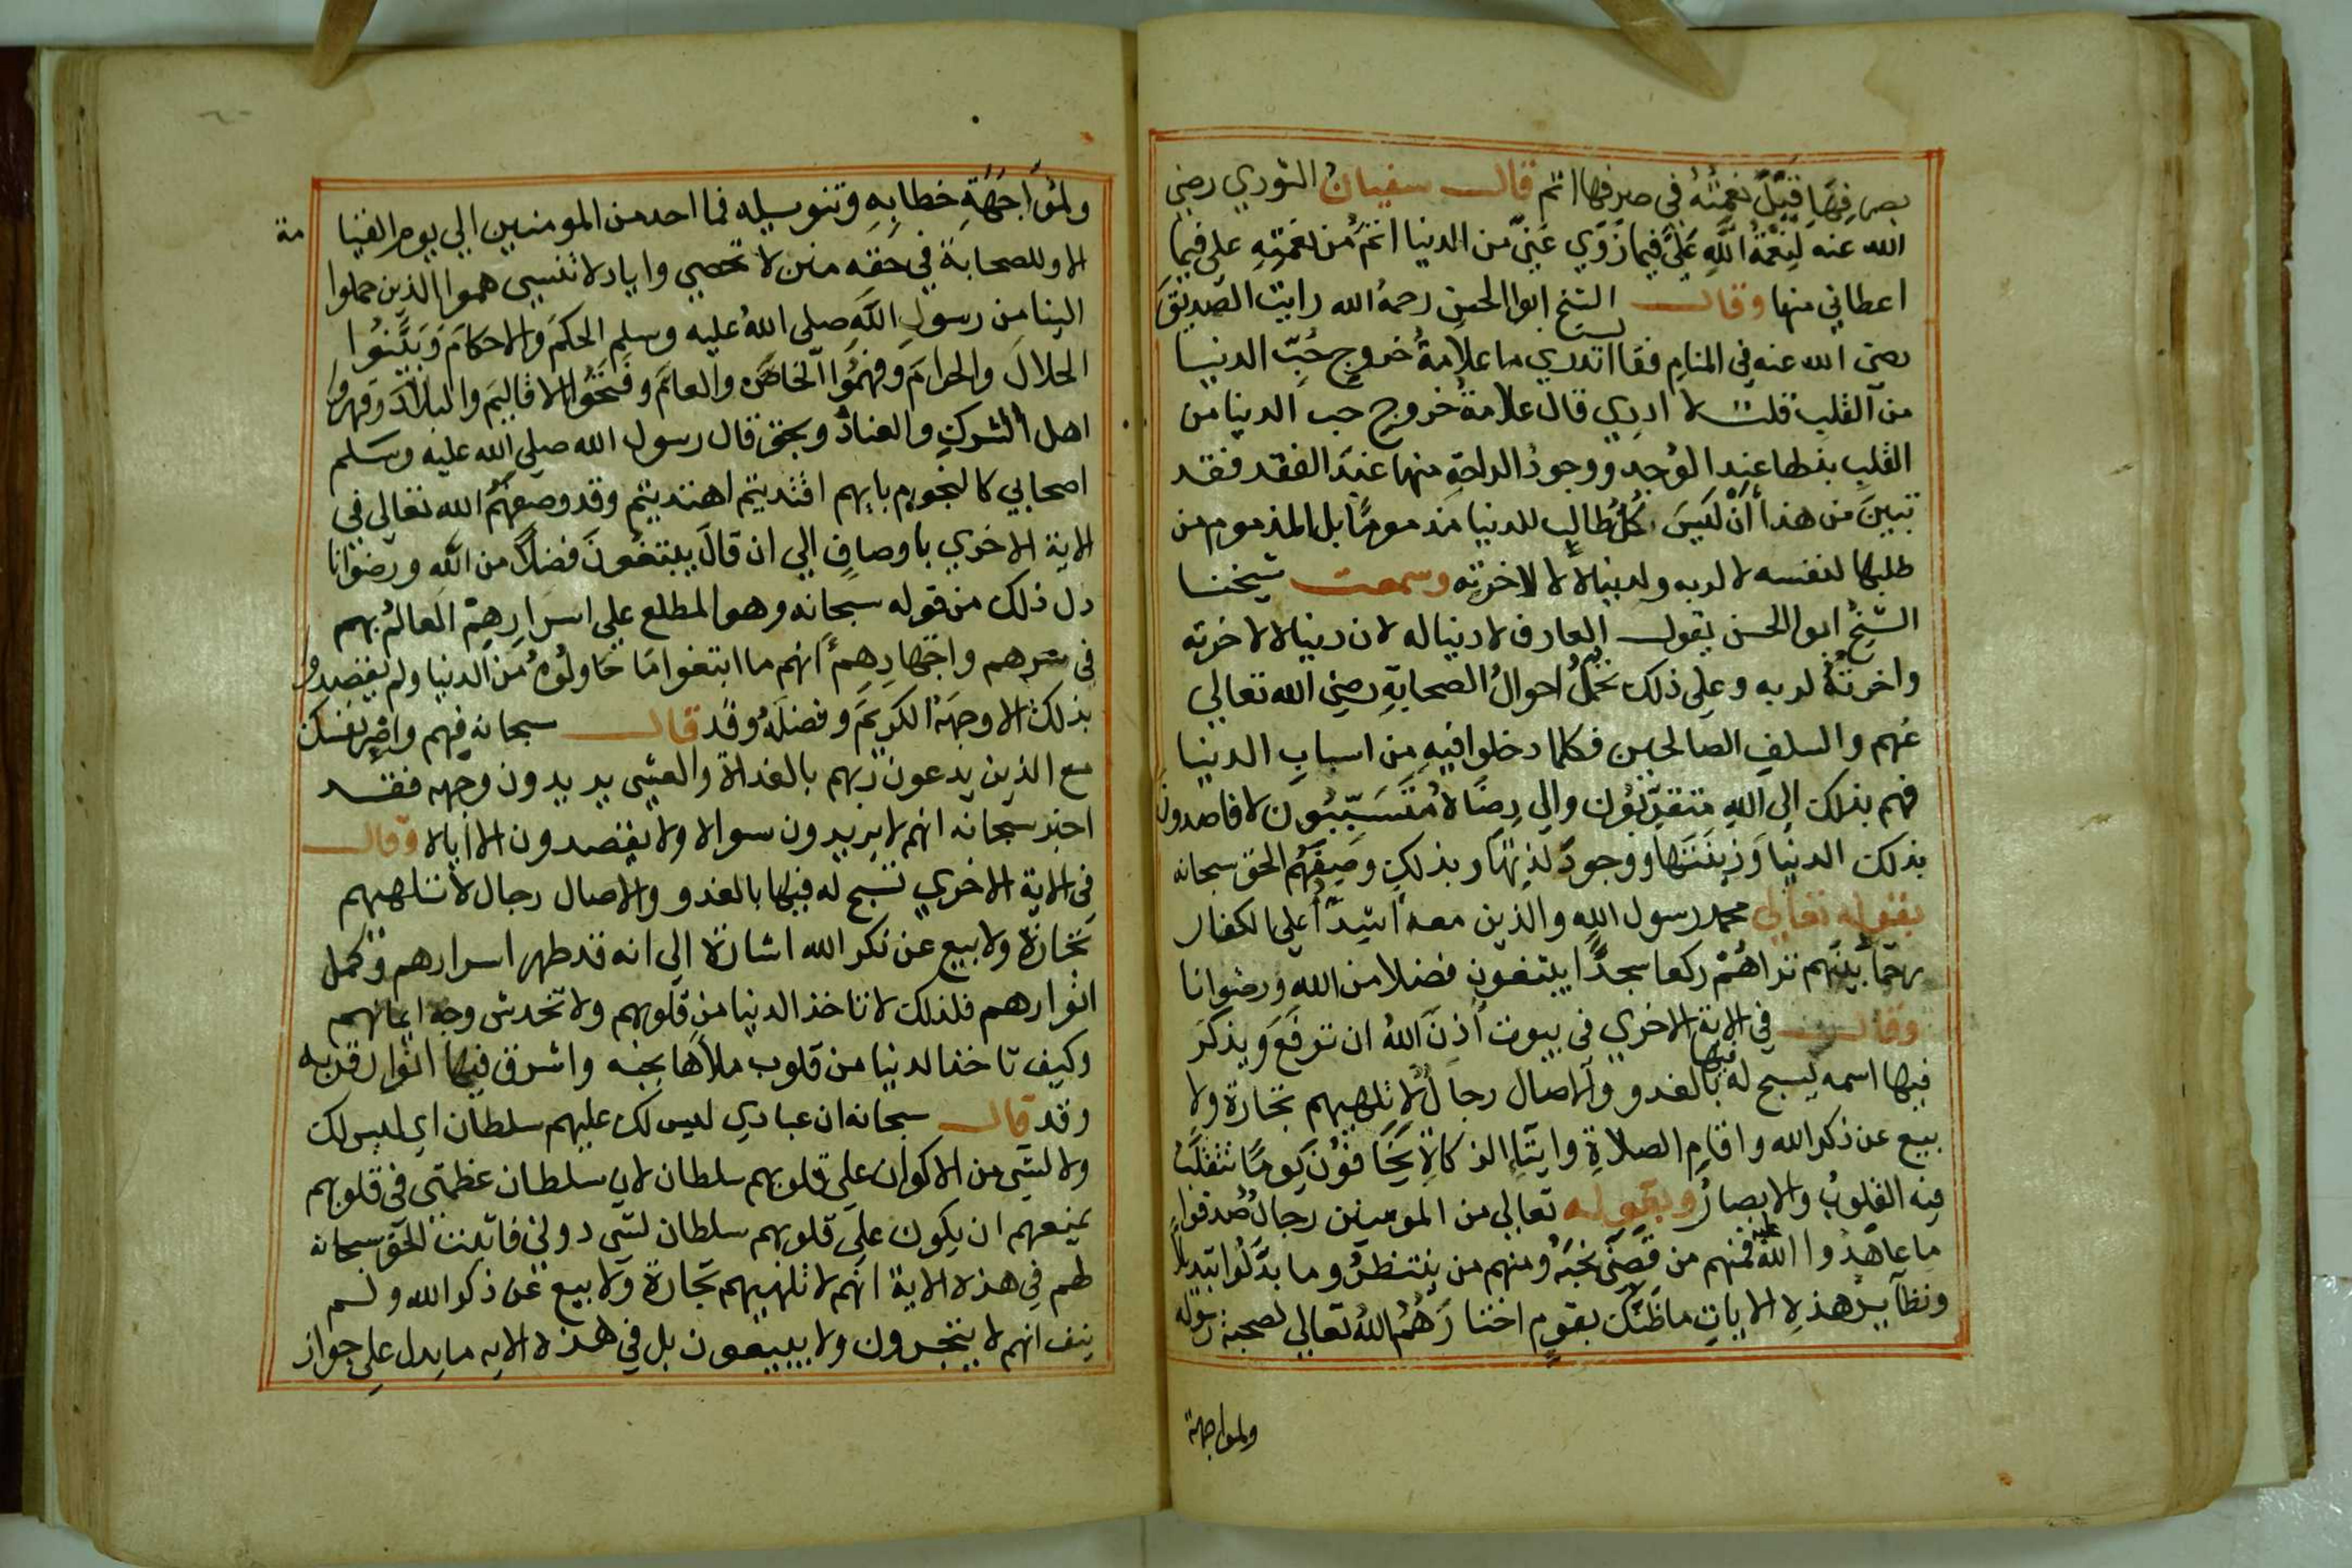 بصرفها قيل نعمته في صرفها اتم قال سفيان الثوري رضي
الله عنه لنعمة الله علي فيما زوي عني من الدنيا اتم من نعمته علي فيما
اعطاني منها وقال الشيخ ابوا الحسن رحمه الله رايت الصديق
رضي الله عنه في المنام فقا اتدري ما علامة خروج حب الدنيا
من القلب قلت لا ادري قال علامة خروج حب الدنيا من
القلب بذلها عند الوجد ووجود الراحة منها عند الفقد فقد
تبين من هذا أن ليس كل طالب للدنيا مذموما بل المذموم من
طلبها لنفسه لا لربه ولدنياه لا لاخرته وسمعت شيخنا
الشيخ ابوا الحسن يقول العارف لا دنيا له لان دنياه لاخرته
واخرته لربه وعلي ذلك تحمل احوال الصحابة رضي الله تعالي
عنهم والسلف الصالحين فكلما دخلوا فيه من اسباب الدنيا
فهم بذلك الي الله متقربون والي رضاه متسببون لا قاصدون
بذلك الدنيا وزينتها ووجود لذتها وبذلك وصفهم الحق سبحانه
بقوله تعالي محمد رسول الله والذين معه اشدآ علي الكفار
رحمآ بينهم تراهم ركعا سجدا يبتغون فضلا من الله ورضوانا
وقال في الاية الاخري في بيوت أذن الله ان ترفع ويذكر
فيها اسمه يسبح له فيها بالغدو والاصال رجال لا تلهيهم تجارة ولا
بيع عن ذكر الله واقام الصلاة وايتآء الزكاة يخافون يوما تتقلب
فيه القلوب والابصار وبقوله تعالي من المومنين رجال صدقوا
ما عاهدوا الله عليه فمنهم من قضي نحبه ومنهم من ينتظر وما بدلوا تبديلا
ونظآير هذه الايات ما ظنك بقوم اختارهم الله تعالي لصحبة رسوله
ولمواجهة
ولمواجهة خطابه وتنويسيله فما احد من المومنين الي يوم القيا
مة
الا وللصحابة في حقه منن لا تحصي واياد لا تنسي هموا الذين حملوا
الينا من رسول الله صلي الله عليه وسلم الحكم والاحكام وبينوا
الحلال والحرام وفهموا الخاص والعام وفتحوا الاقاليم والبلاد وقهروا
اهل الشرك والعناد وبحق قال رسول الله صلي الله عليه وسلم
اصحابي كالنجوم بايهم اقتديتم اهتديتم وقد وصفهم الله تعالي في
الاية الاخري باوصاف الي ان قال يبتغون فضلا من الله ورضوانا
دل ذلك من قوله سبحانه وهو المطلع علي اسرارهم العالم بهم
في سرهم واجهارهم انهم ما ابتغوا ما حاولوه من الدنيا ولم يقصدوا
بذلك الا وجهه الكريم وفضله وقد قال سبحانه فيهم واصبر نفسك
مع الذين يدعون ربهم بالغداة والعشي يريدون وجهه فقد
اخبر سبحانه انهم لا يريدون سواه ولا يقصدون الا اياه وقال
في الاية الاخري تسبح له فيها بالغدو والاصال رجال لا تلهيهم
تجارة ولا بيع عن ذكر الله اشارة الي انه قد طهر اسرارهم وكمل
انوارهم فلذلك لا تاخذ الدنيا من قلوبهم ولا تخدش وجه ايمانهم
وكيف تاخذ الدنيا من قلوب ملأها بحبه واشرق فيها انوار قربه
وقد قال سبحانه ان عبادي ليس لك عليهم سلطان اي ليس لك
ولا لشي من الاكوان علي قلوبهم سلطان لان سلطان عظمتي في قلوبهم
يمنعهم ان يكون علي قلوبهم سلطان لشي دوني فاثبت الحق سبحانه
لهم في هذه الاية انهم لا تلهيهم تجارة ولا بيع عن ذكر الله ولم
ينف انهم لا يتجرون ولا يبيعون بل في هذه الايه ما يدل علي جواز